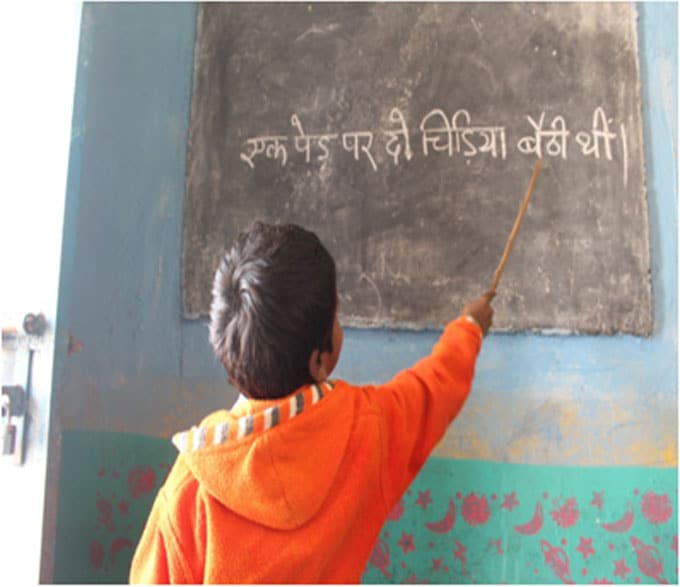 एक पेड़ पर दो चिड़िया बैठी थीं।